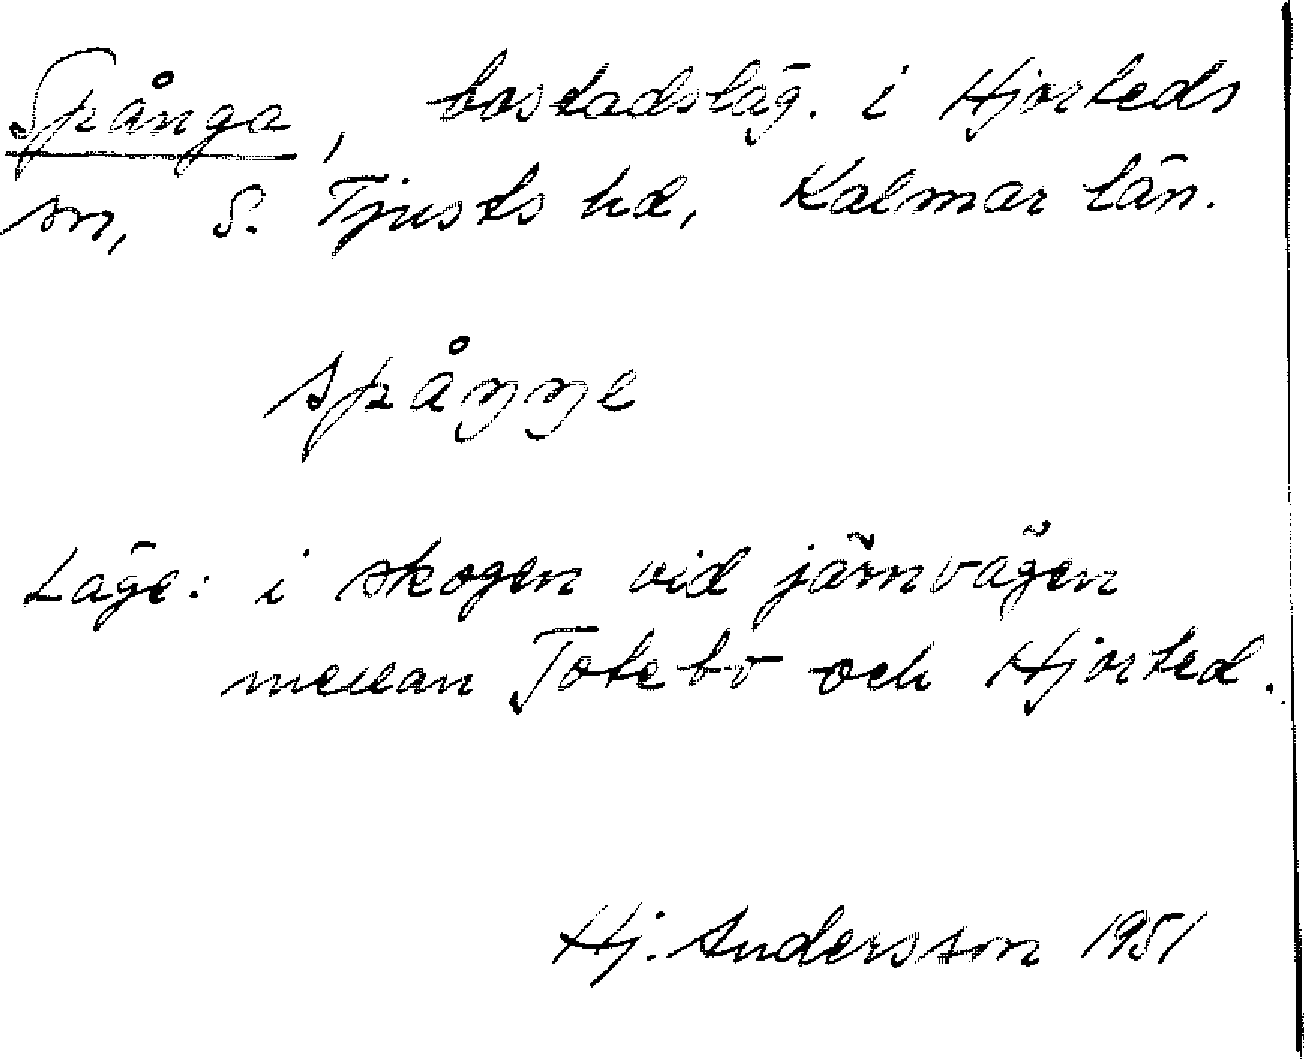 Spånga, bostadsläg. i Hjorteds
sn, S. Tjusts hd, Kalmar län.
spåŋŋe
Läge: i skogen vid järnvägen
mellan Totebo och Hjorted.
Hj. Andersson 1951